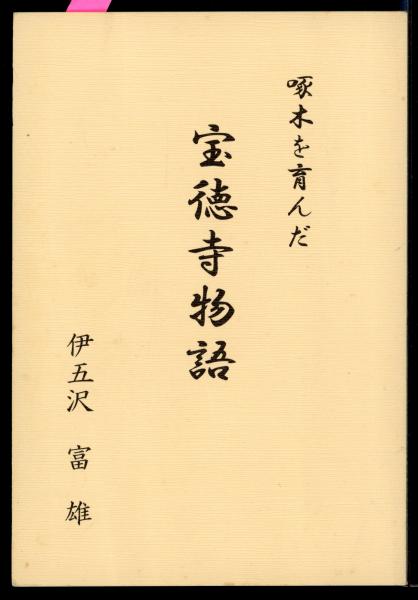 啄木を育んだ
宝徳寺物語
伊五沢 富雄